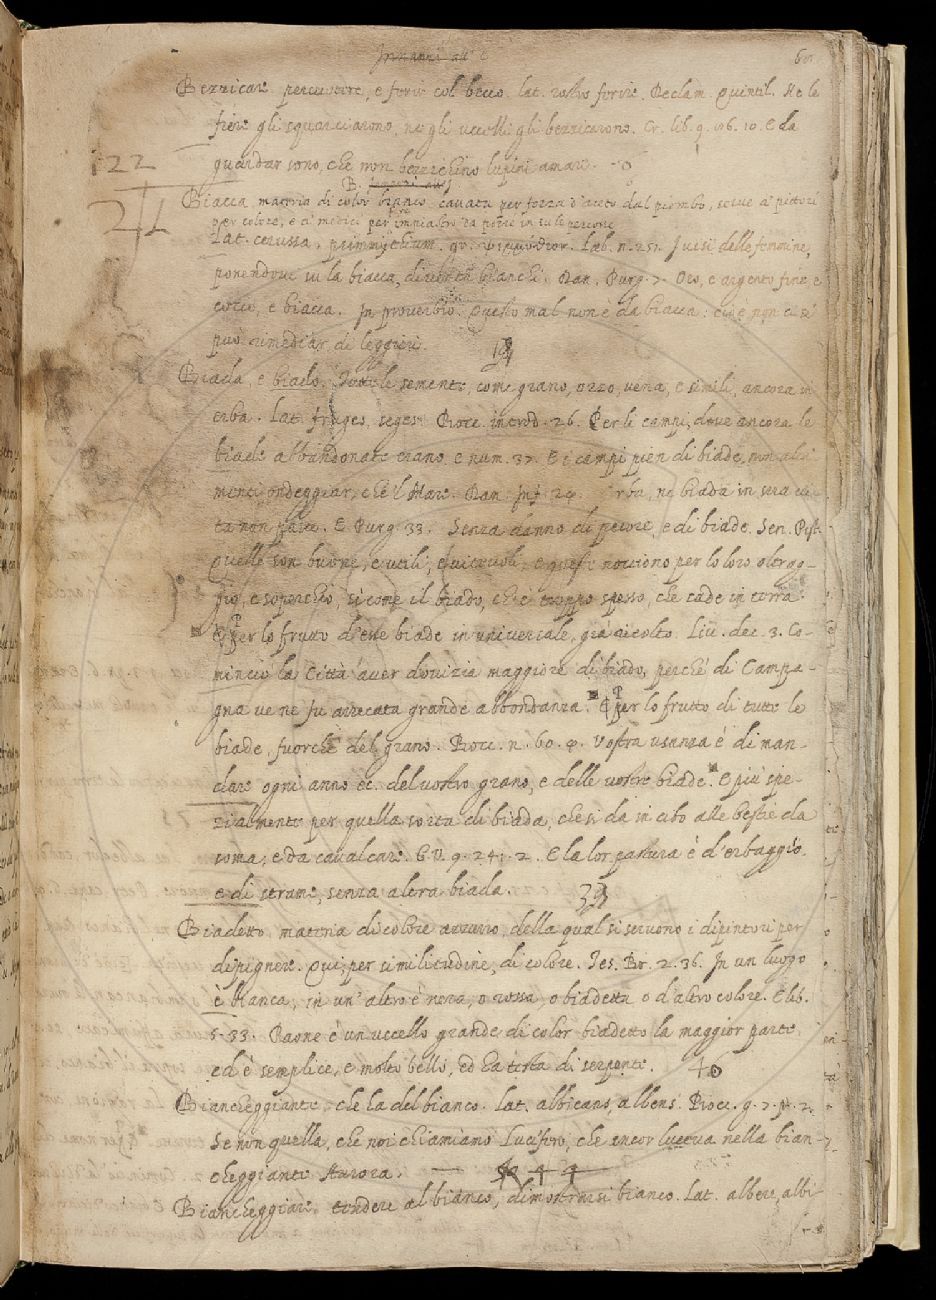 Innanzi all' E 60
Bezzicare percuotere, e ferir col becco. lat. rostro ferire. Declam. Quintil. Ne le
fiere gli squarciarono, ne gli uccelli gli bezzicarono. Cr. lib. 9. 106. 10. E da
122 guardar sono, che non bezzichino lupini amari.
B.
Biacca materia di color bianco cavata per forza d'aceto dal piombo, serve ai pittori
24 per colore, e ai medici per impiastro da porre in su le percosse
Lat. cerussa, psimmythium. gr. ψιμμύθιον. Lab. n. 251. I visi delle femmine,
ponendovi su la biacca, diventan bianchi. Dan. Purg. 7. Oro, e argento fine, e
cocco, e biacca. In proverbio. Questo mal non è da biacca: cioè non ci si
può rimediar di leggieri.
Biada, e biado. Tutte le semente, come grano, orzo, vena, e simili, ancora in
erba. Lat. fruges, seges. Bocc. introd. 26. Per li campi, dove ancora le
biade abbandonate erano. e num. 37. E i campi pien di biade, non altri
menti ondeggiar, che 'l Mare. Dan. Inf. 24. erba, ne biada in sua vi-
ta non pasce. E Purg. 33. Senza danno di pecore, e di biade. Sen. Pist.
Quelle son buone, e utili, e questi nocciono per lo loro oltrag-
gio, e soperchio, sì come il biado, ch'è troppo spesso, che cade in terra
E per lo frutto d'esse biade in universale, già ricolto. Liv. dec. 3. Co-
minciò la Città aver dovizia maggiore di biado, perchè di Campa-
gna ve ne fu arrecata grande abbondanza. E per lo frutto di tutte le
biade, fuorchè del grano. Bocc. n. 60. 9. Vostra usanza è di man-
dare ogni anno ec. del vostro grano, e delle vostre biade. E più spe-
zialmente per quella sorta di biada, che si da in cibo alle bestie da
soma, e da cavalcare. G.V. 9. 241. 2. E la lor pastura è d'erbaggio
e di strame, senza altra biada. 39
Biadetto materia di colore azzurro, della qual si servono i dipintori per
dipignere. Qui, per similitudine, di colore. Tes. Br. 2. 36. In un luogo
è bianca, in un' altro è nera, o rossa, o biadetta o d'altro colore. E lib.
5. 33. Paone è un uccello grande di color biadetto la maggior parte
ed è semplice, e molto bello, ed ha testa di serpente. 40
Biancheggiante, che ha del bianco. Lat. albicans, albens. Bocc. g. 7. p. 2.
Se non quella, che noi chiamiamo Lucifero, che ancor luceva nella bian-
cheggiante Aurora.
Biancheggiare, tendere al bianco, dimostrarsi bianco. Lat. albere, albi-